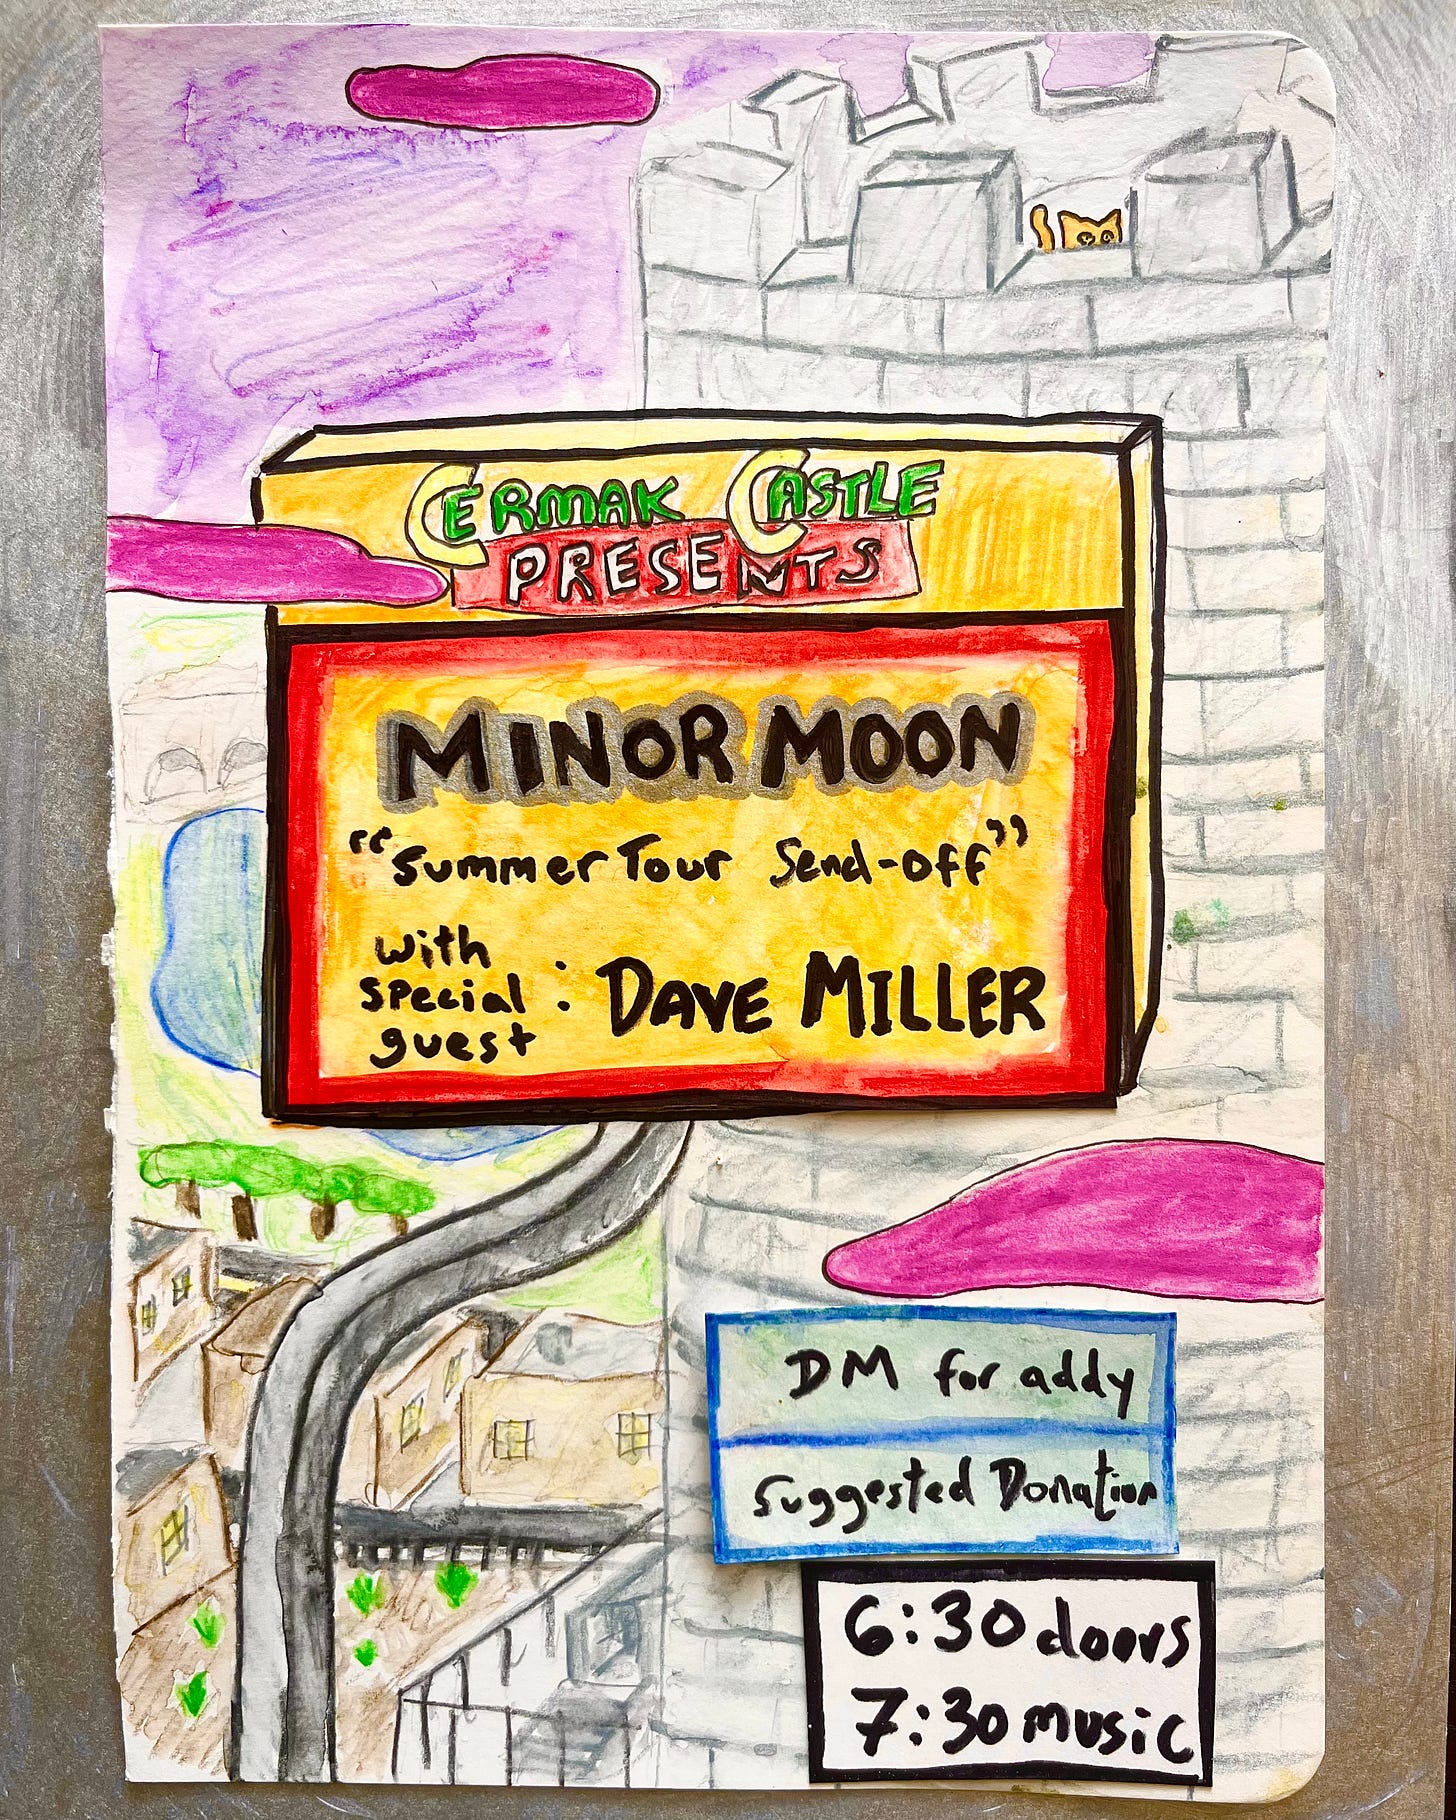 CERMAK CASTLE
PRESENTS
MINOR MOON
"Summer Tour Send-off"
with
special
guest : DAVE MILLER
DM for addy
Suggested Donation
6:30 doors
7:30 music